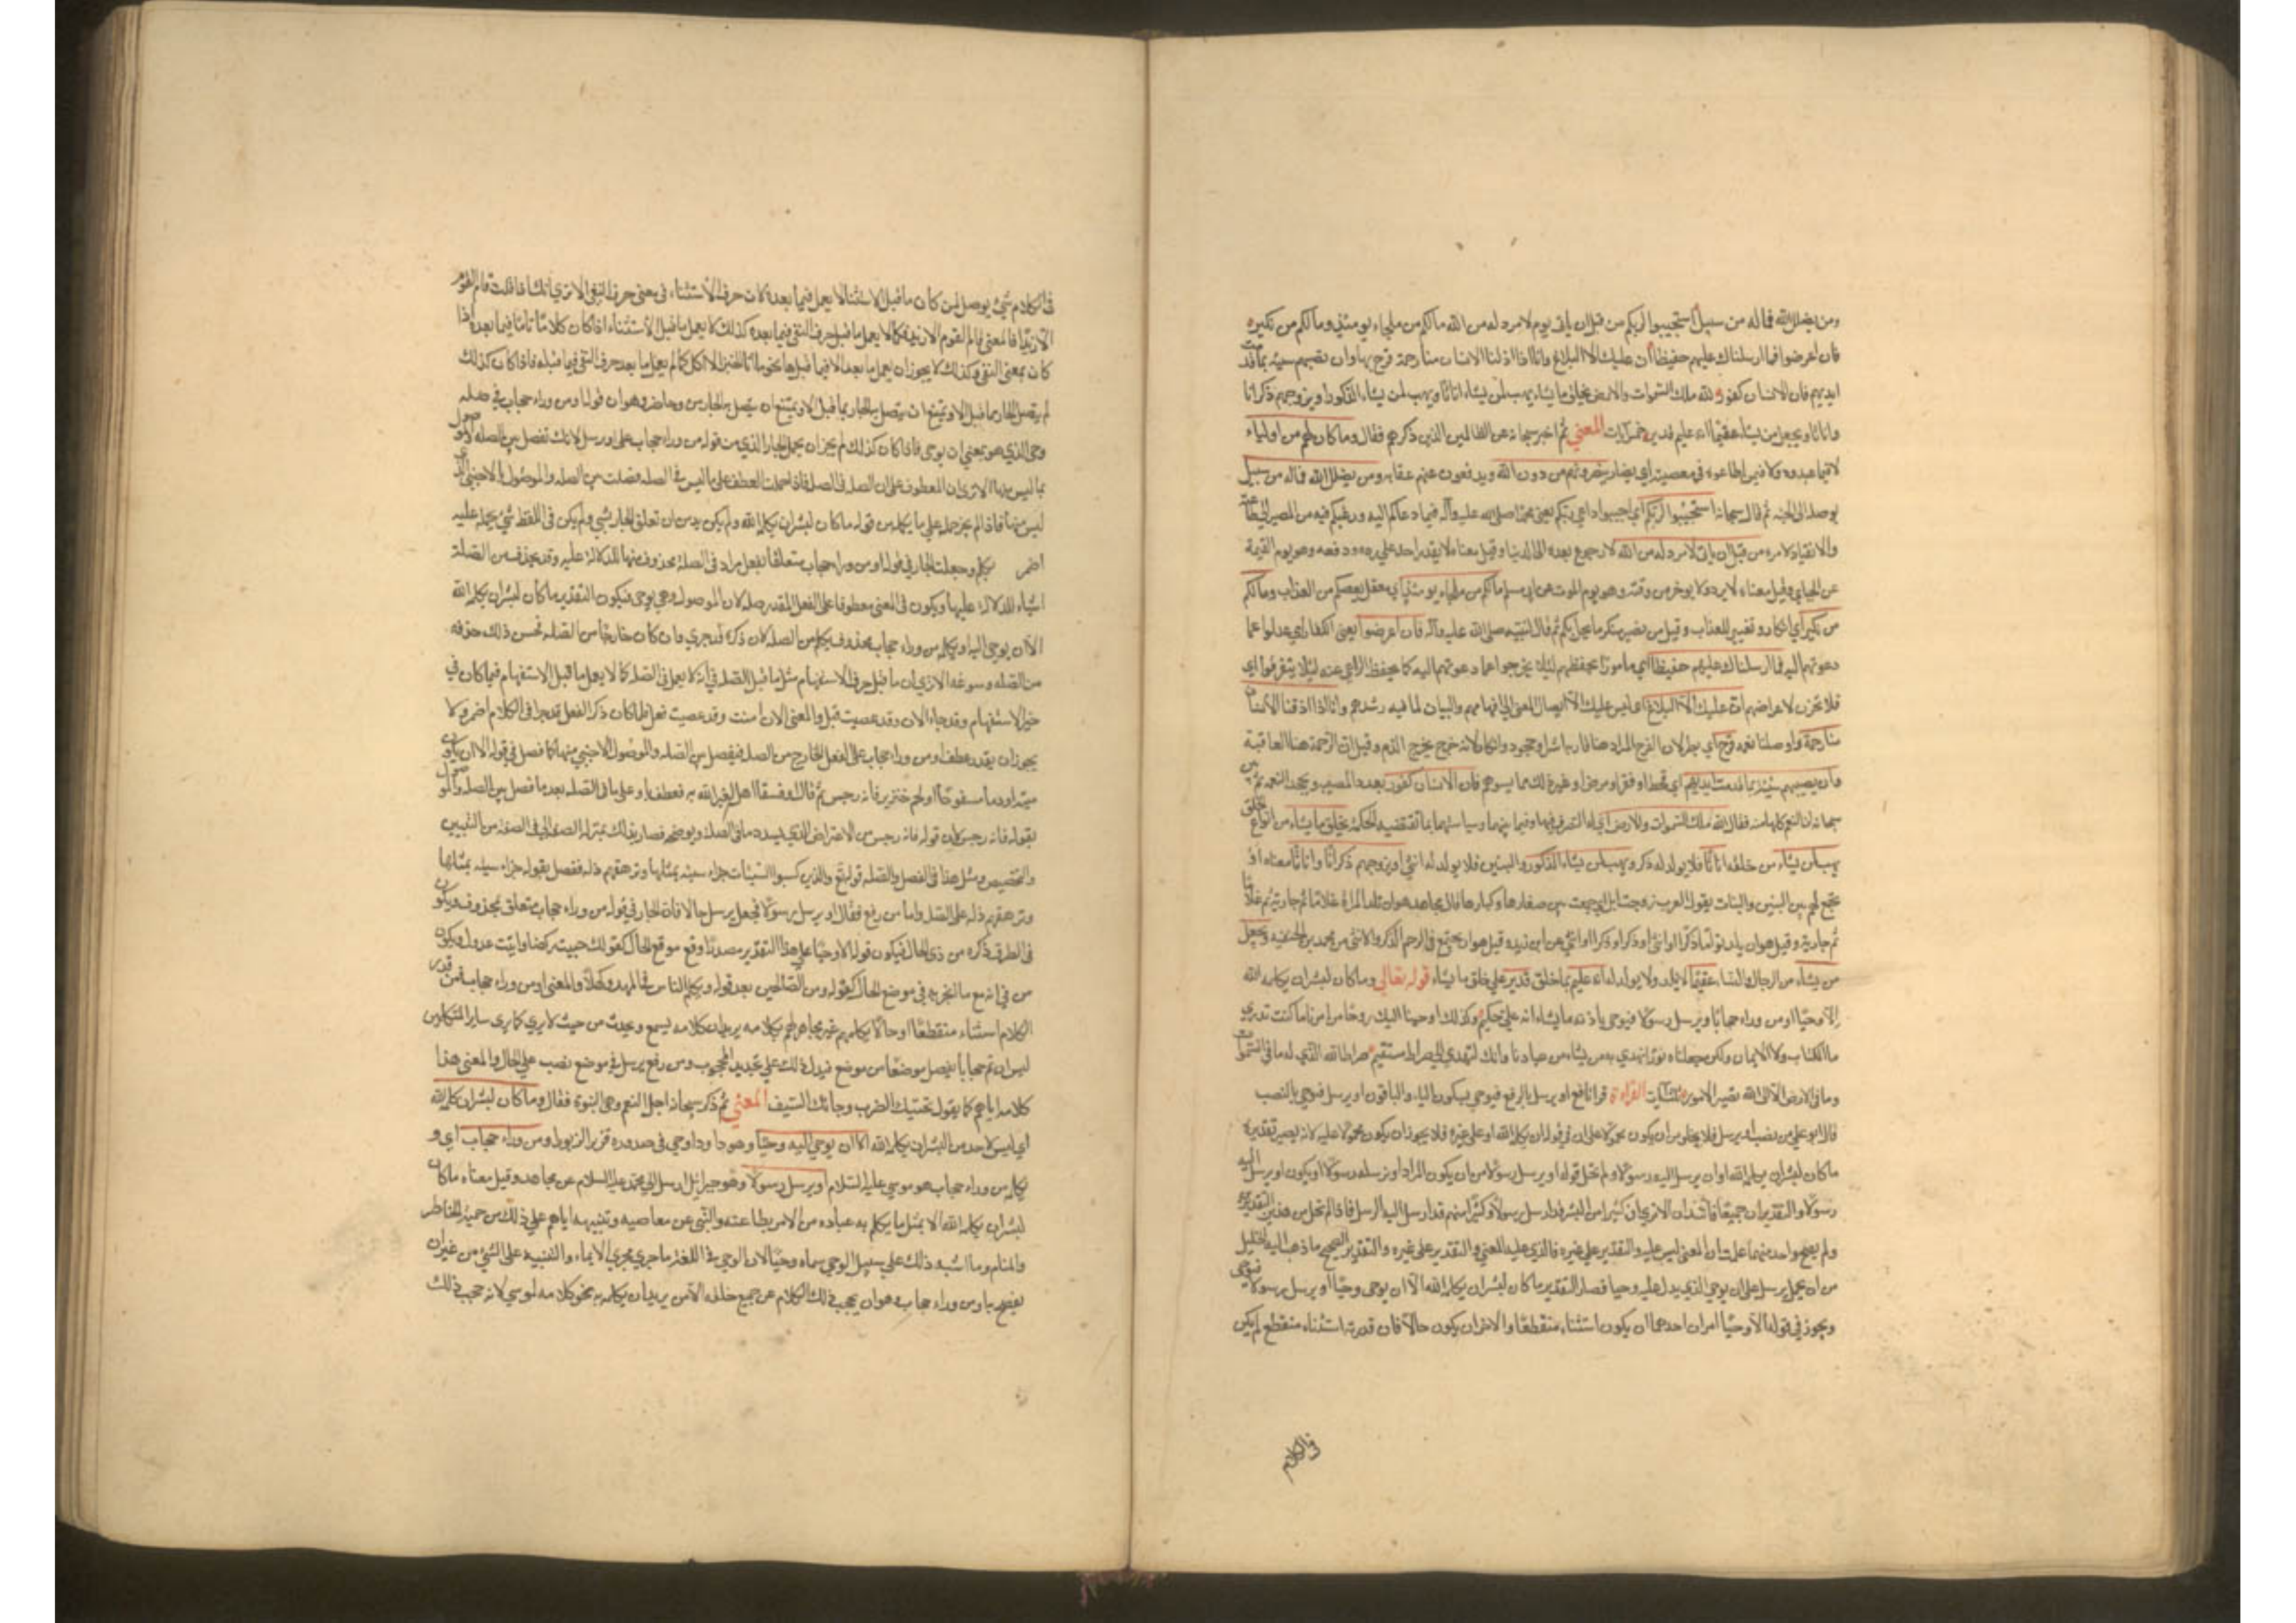 ومن يضلل الله فما له من سبيل استجيبوا لربكم من قبل ان ياتي يوم لا مرد له من الله ما لكم من ملجاء يومئذ وما لكم من نكير
فان اعرضوا فما ارسلناك عليهم حفيظا ان عليك الا البلاغ وانا اذا اذقنا الانسان منا رحمة فرح بها وان تصبهم سيئة بما قدمت
ايديهم فان الانسان كفور لله ملك السموات والارض يخلق ما يشاء يهب لمن يشاء اناثا ويهب لمن يشاء الذكور او يزوجهم ذكرانا
واناثا ويجعل من يشاء عقيما انه عليم قدير خمس آيات المعني ثم اخبر سبحانه عن الظالمين الذين ذكرهم فقال وما كان لهم من اولياء
لا فيما عبدوه ولا فيمن اطاعوه في معصيته اي انصار ينصرونهم من دون الله ويدفعون عنهم عقابه ومن يضلل الله فما له من سبيل
يوصله الي الجنة ثم قال سبحانه استجيبوا لربكم اي اجيبوا داعي ربكم يعني محمدا صلي الله عليه وآله فيما دعاكم اليه ورغبكم فيه من المصير الي طاعته
والانقياد لامره من قبل ان ياتي يوم لا مرد له من الله لا رجوع بعده الي الدنيا وقيل معناه لا يقدر احد علي رده ودفعه وهو يوم القيمة
عن الجبايي وقيل معناه لا يرد ولا يوخر من وقته وهو يوم الموت عن ابي مسلم ما لكم من ملجاء يومئذ اي معقل يعصمكم من العذاب وما لكم
من نكير اي انكار وتغيير للعذاب وقيل من نصير منكر ما يحل بكم ثم قال لنبيه صلي الله عليه وآله فان اعرضوا يعني الكفار اي عدلوا عما
دعوتهم اليه فما ارسلناك عليهم حفيظا اي مامورا بحفظهم لئلا يخرجوا عما دعوتهم اليه كما يحفظ الراعي غنمه لئلا يتفرقوا اي
فلا تحزن لاعراضهم ان عليك الا البلاغ اي ليس عليك الا ايصال المعني الي افهامهم والبيان لما فيه رشدهم وانا اذا اذقنا الانسان
منا رحمة واوصلنا نعمه فرح بها اي بطر لان الفرح المراد هنا قارنه اشر او جحود وانكار لانه خرج مخرج الذم وقيل ان الرحمة هنا العافية
وان تصبهم سيئة بما قدمت ايديهم اي قحط او فقر او مرض او غير ذلك مما يسوءهم فان الانسان كفور يعدد المصيب ويجحد النعمه ثم بين
سبحانه ان النعم كلها منه فقال لله ملك السموات والارض اي له التصرف فيهما وفيما بينهما وسياستهما بما تقتضيه الحكمة يخلق ما يشاء من انواع الخلق
يهب لمن يشاء من خلقه اناثا فلا يولد له ذكر ويهب لمن يشاء الذكور والبنين فلا يولد له انثي او يزوجهم ذكرانا واناثا معناه او
يجمع لهم بين البنين والبنات يقول العرب زوجت ابلي اي جمعت بين صغارها وكبارها قال مجاهد هو ان تلد المراة غلاما ثم جارية ثم غلاما
ثم جارية وقيل هو ان يلد توأما ذكرا او انثي او ذكرا وذكرا او انثي وانثي عن ابن زيد وقيل هو ان يجتمع في الرحم الذكر والانثي عن محمد بن الحنفيه ويجعل
من يشاء من الرجال والنساء عقيما لا يلد ولا يولد له انه عليم بما خلق قدير علي خلق ما يشاء قوله تعالي وما كان لبشر ان يكلمه الله
الا وحيا او من وراء حجاب او يرسل رسولا فيوحي باذنه ما يشاء انه علي حكيم وكذلك اوحينا اليك روحا من امرنا ما كنت تدري
ما الكتاب ولا الايمان ولكن جعلناه نورا نهدي به من يشاء من عبادنا وانك لتهدي الي صراط مستقيم صراط الله الذي له ما في السموات
وما في الارض الا الي الله تصير الامور ثلث آيات القراءة قرا نافع او يرسل بالرفع فيوحي بسكون الياء والباقون او يرسل فيوحي بالنصب
قال ابو علي من نصب او يرسل فلا يخلو من ان يكون محمولا علي ان في قوله ان يكلمه الله او علي غيره فلا يجوز ان يكون محمولا عليه لانه يصير تقديره
ما كان لبشر ان يكلمه الله او ان يرسل اليه رسولا ولم تخل قوله او يرسل رسولا من ان يكون المراد او يرسله رسولا او يكون او يرسل اليه
رسولا والتقديران جميعا فاسدان الا تري ان كثيرا من البشر قد ارسل رسولا وكثيرا منهم قد ارسل اليه الرسل فاذا لم تخل من هذين التقديرين
ولم يصح واحد منهما علمت ان المعني ليس عليه والتقدير علي غيره فالذي عليه المعني والتقدير علي غيره والتقدير الصحيح ما ذهب اليه الخليل
من ان يحمل يرسل علي ان يوحي الذي يدل عليه وحيا فصار التقدير ما كان لبشر ان يكلمه الله الا ان يوحي وحيا او يرسل رسولا فيوحي
ويجوز في قوله الا وحيا امران احدهما ان يكون استثناء منقطعا والاخر ان يكون حالا فان قدرته استثناء منقطع لم يكن
في الكلام
في الكلام شيء يوصل بمن كان ما قبل الاستثنا لا يعمل فيما بعده لان حرف الاستثناء في معني حرف النفي الا تري انك اذا قلت قام القوم
الا زيدا فالمعني قام القوم لا زيد فكما لا يعمل ما قبل حرف النفي فيما بعده كذلك لا يعمل ما قبل الاستثناء اذا كان كلاما تاما فيما بعده اذا
كان بمعني النفي وكذلك لا يجوز ان يعمل ما بعد الا فيما قبلها نحو ما انا الخبز الا آكل كما لم يعمل ما بعد حرف النفي فيما قبله فاذا كان كذلك
لم يتصل الجار بما قبل الا ويمتنع ان يتصل به الجار من وجه آخر وهو ان قوله او من وراء حجاب في صله
وحي الذي هو بمعني ان يوحي فاذا كان كذلك لم يجز ان يحمل الجار الذي من قوله من وراء حجاب علي او يرسل لانك تفصل بين الصله والموصول
بما ليس منهما الا تري ان المعطوف علي الصله في الصله فاذا حملت العطف علي ما ليس في الصله فصلت بين الصله والموصول بالاجنبي الذي
ليس منهما فاذا لم يجز حمله علي ما يكلمه من قوله ما كان لبشر ان يكلمه الله ولم يكن بد من ان تعلق الجار بشي ولم يكن في اللفظ شيء يحمله عليه
اضمر يكلم وجعلت الجار في قوله او من وراء حجاب متعلقا بفعل مراد في الصلة محذوف منها للدلالة عليه وقد يحذف من الصلة
اشياء للدلالة عليها ويكون في المعني معطوفا علي الفعل المقدر صله لان الموصول وهي يوحي فيكون التقدير ما كان لبشر ان يكلمه الله
الا ان يوحي اليه او يكلمه من وراء حجاب فحذف يكلم من الصله لان ذكره قد جري وان كان خارجا من الصله فحسن ذلك حذفه
من الصله وسوغه الا تري ان ما قبل حرف الاستفهام مثل ما قبل الصله في انه لا يعمل في الصله كما لا يعمل ما قبل الاستفهام فيما كان في
خبر الاستفهام وقد جاء الان وقد عصيت قبل والمعني الان آمنت وقد عصيت فلما كان ذكر الفعل قد جرا في الكلام اضمر ولا
يجوز ان يقدر عطف او من وراء حجاب علي الفعل الخارج من الصله فيفصل بين الصله والموصول الاجنبي منهما كما فصل في قوله الا ان يكون
ميتة او دما مسفوحا او لحم خنزير فانه رجس ثم قال او فسقا اهل لغير الله به فعطف باو علي ما في الصله بعد ما فصل بين الصله والموصول
بقوله فانه رجس لان قوله فانه رجس من الاعتراض الذي يسدد ما في الصله ويوضحه فصار بذلك بمنزله الصفه لما في الصفه من التبيين
والتخصيص ومثل هذا في الفصل والصله قوله تع والذين كسبوا السيئات جزاء سيئة بمثلها وترهقهم ذله ففصل بقوله جزاء سيئه بمثلها
وترهقهم ذله علي الصله واما من رفع فقال او يرسل رسولا فجعل يرسل حالا فان الجار في قوله من وراء حجاب متعلق بمحذوف ويكون
في الظرف ذكره من ذي الحال فيكون قوله الا وحيا علي هذا التقدير مصدرا وقع موقع الحال كقولك جيت ركضا واتيت عدوا ويكون
من في انه مع ما انجر به في موضع الحال كقوله ومن الصالحين بعد قوله ويكلم الناس في المهد وكهلا والمعني او من وراء حجاب فمن قدر
الكلام استثناء منقطعا او حالا يكلمهم غير مجاهر لهم بكلامه يريد ان كلامه يسمع ويحدث من حيث لا يري كما يري ساير المتكلمين
ليس ان ثم حجابا يفصل موضعا من موضع فيدل ذلك علي تحديد المحجوب ومن رفع يرسل في موضع نصب علي الحال والمعني هذا
كلامه اياهم كما يقول تحيتك الضرب وعتابك السيف المعني ثم ذكر سبحانه اجل النعم وهي النبوة فقال وما كان لبشر ان يكلمه الله
اي ليس لاحد من البشر ان يكلمه الله الا ان يوحي اليه وحيا وهو داود اوحي في صدوره فزبر الزبور او من وراء حجاب اي و
يكلمه من وراء حجاب هو موسي عليه السلام او يرسل رسولا وهو جبرائيل ارسل الي محمد عليه السلام عن مجاهد وقيل معناه ما كان
لبشر ان يكلمه الله الا بمثل ما يكلم به عباده من الامر بطاعته والنهي عن معاصيه وتنبيهه اياهم علي ذلك من جهة الخاطر
والمنام وما اشبه ذلك علي سبيل الوحي سماه وحيا لان الوحي في اللغة ما جري مجري الايماء والتنبيه علي الشيء من غير ان
يفصح به او من وراء حجاب وهو ان يحجب ذلك الكلام عن جميع خلقه الا من يريد ان يكلمه به نحو كلامه لموسي لانه حجب ذلك